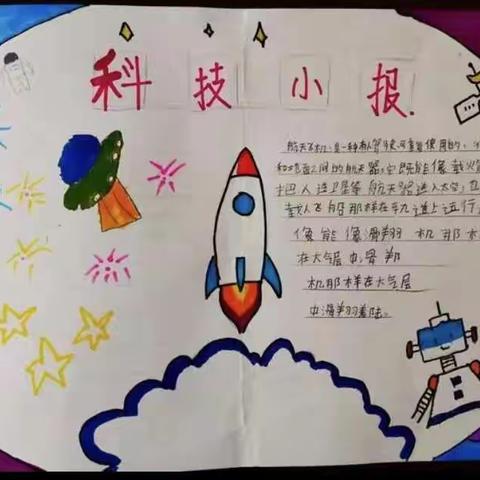 科技小报.
航天飞机是一种有人驾驶可重复使用的、
和地面之间的航天器,它既能像载火箭
把人造卫星等航天器送入太空,也
载人飞船那样在轨道上运行
像能像滑翔机那
在大气层中滑翔
机那样在大气层
中滑翔着陆。